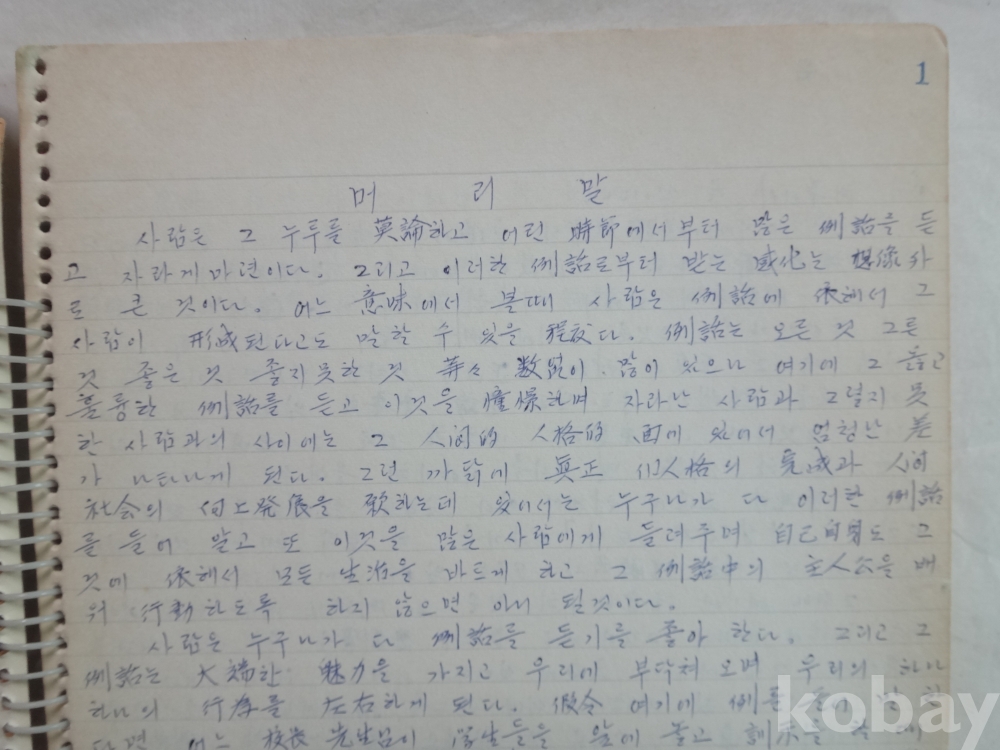 1
머 리 말
사람은 그 누구를 莫論하고 어린 時節에서부터 많은 例話를 듣
고 자라게 마련이다. 그리고 이러한 例話로부터 받는 感化는 想像外
로 큰 것이다. 어느 意味에서 볼때 사람은 例話에 依해서 그
사람이 形成된다고도 말할 수 있을 程度다. 例話는 옳은 것 그른
것 좋은 것 좋지못한 것 等々 数없이 많이 있으나 여기에 그 옳고
훌륭한 例話를 듣고 이것을 憧憬하며 자라난 사람과 그렇지 못
한 사람과의 사이에는 그 人间的 人格的 面에 있어서 엄청난 差
가 나타나게 된다. 그런 까닭에 眞正 人格의 完成과 人间
社会의 向上発展을 欲하는데 있어서는 누구나가 다 이러한 例話
를 들어 알고 또 이것을 많은 사람에게 들려주며 自己自身도 그
것에 依해서 모든 生活을 바르게 하고 그 例話中의 主人公을 배
워 行動하도록 하지 않으면 아니 될것이다.
사람은 누구나가 다 例話를 듣기를 좋아 한다. 그리고 그
例話는 大端한 魅力을 가지고 우리에 부닥쳐 오며 우리의 하나
하나의 行為를 左右하게 된다. 假令 여기에 例를
어느 校長 先生님이 学生들을 앞에 놓고
kobay